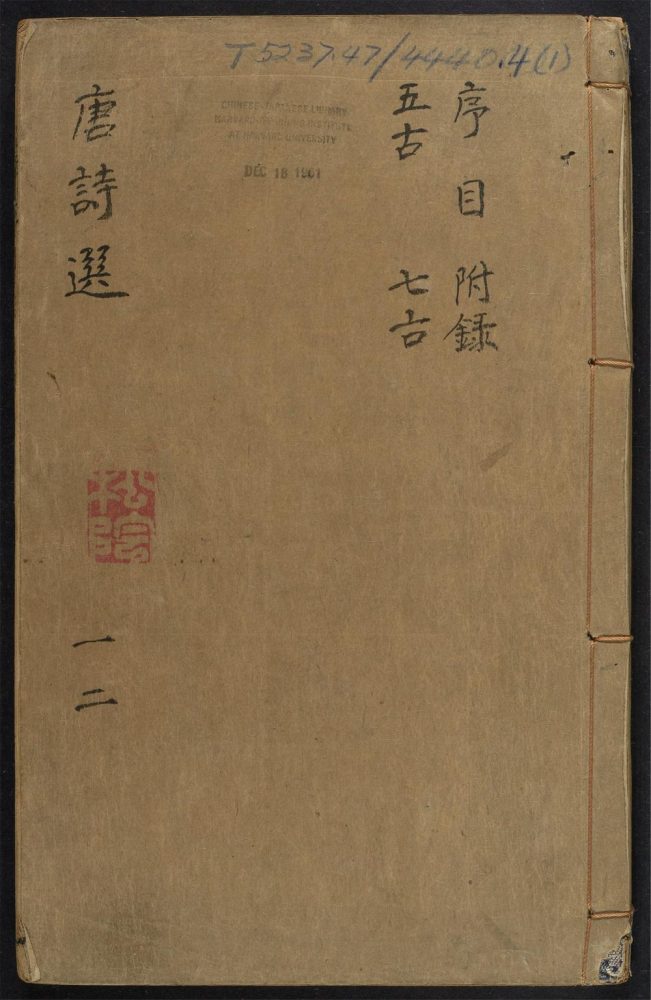 T5237.47/4440.4(1)
CHINESE-JAPANESE LIBRARY
HARVARD-YENCHING INSTITUTE
AT HARVARD UNIVERSITY
DEC 18 1961
序目 附録
五古 七古
唐詩選
一二